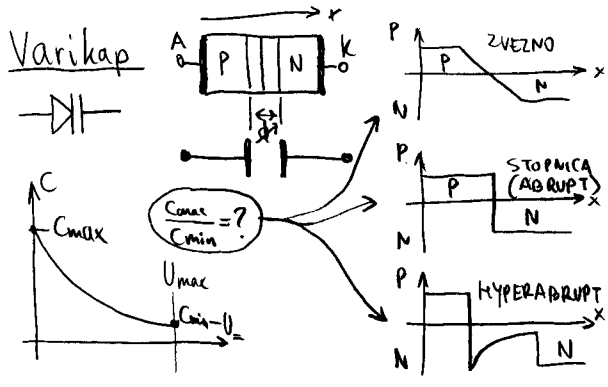 Varikap
x
A
P
N
K
d
C
Cmax
Umax
Cmin
-U=
Cmax
Cmin
=?
P
ZVEZNO
P
N
x
N
P
STOPNICA
(ABRUPT)
P
x
N
N
P
HYPERABRUPT
x
N
N